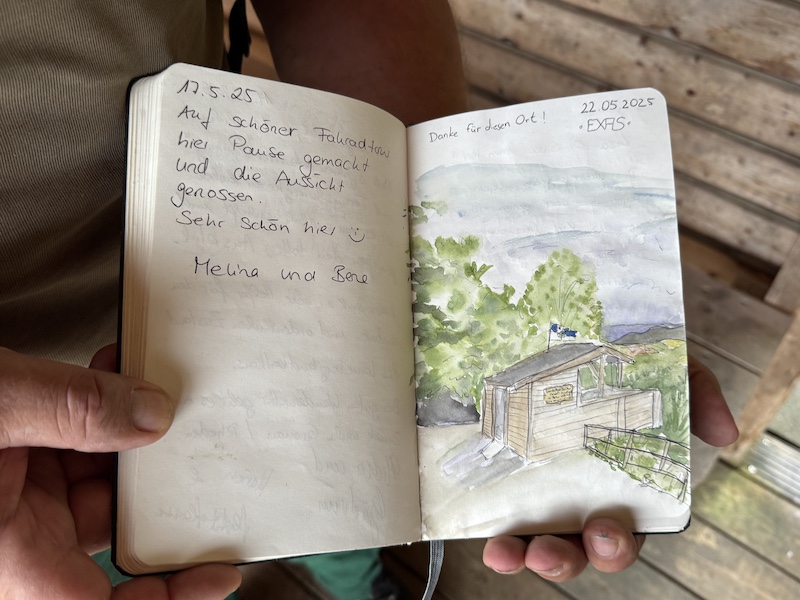 17.5.25
Auf schöner Fahradtour
hier Pause gemacht
und die Aussicht
genossen.
Sehr schön hier :)
Melina und Bene
22.05.2025
Danke für diesen Ort!